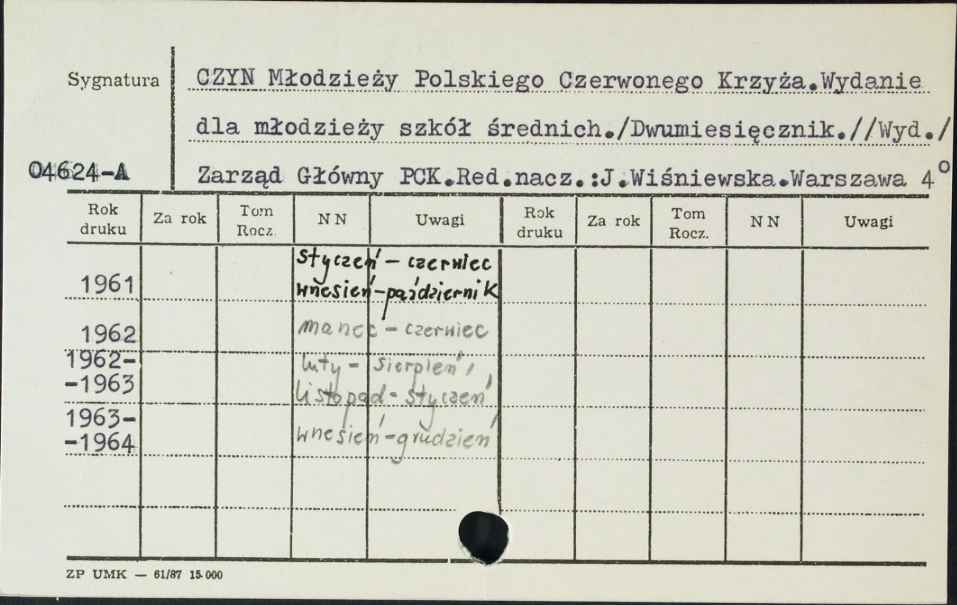 Sygnatura CZYN Młodzieży Polskiego Czerwonego Krzyża.Wydanie
dla młodzieży szkół średnich./Dwumiesięcznik.//Wyd./
04624-A Zarząd Główny PCK.Red.nacz.:J.Wiśniewska.Warszawa 4°
Rok druku Za rok Tom Rocz. NN Uwagi Rok druku Za rok Tom Rocz. NN Uwagi
styczeń - czerwiec
1961 wrzesień - październik
1962 marzec - czerwiec
1962- luty - sierpień,
-1963 listopad - styczeń
1963-
-1964 wrzesień - grudzień
ZP UMK — 61/87 15.000